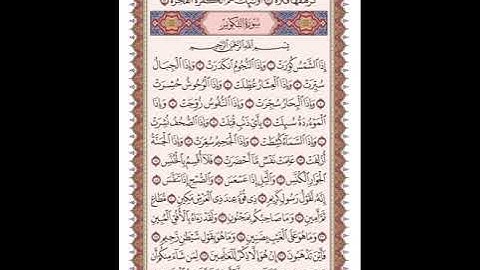 تَرْهَقُهَا قَتَرَةٌ ۝ أُولَٰئِكَ هُمُ الْكَفَرَةُ الْفَجَرَةُ ۝
سُورَةُ التَّكْوِيرِ
بِسْمِ اللَّهِ الرَّحْمَٰنِ الرَّحِيمِ
إِذَا الشَّمْسُ كُوِّرَتْ ۝ وَإِذَا النُّجُومُ انْكَدَرَتْ ۝ وَإِذَا الْجِبَالُ
سُيِّرَتْ ۝ وَإِذَا الْعِشَارُ عُطِّلَتْ ۝ وَإِذَا الْوُحُوشُ حُشِرَتْ
۝ وَإِذَا الْبِحَارُ سُجِّرَتْ ۝ وَإِذَا النُّفُوسُ زُوِّجَتْ ۝ وَإِذَا
الْمَوْءُودَةُ سُئِلَتْ ۝ بِأَيِّ ذَنْبٍ قُتِلَتْ ۝ وَإِذَا الصُّحُفُ نُشِرَتْ
۝ وَإِذَا السَّمَاءُ كُشِطَتْ ۝ وَإِذَا الْجَحِيمُ سُعِّرَتْ ۝ وَإِذَا الْجَنَّةُ
أُزْلِفَتْ ۝ عَلِمَتْ نَفْسٌ مَا أَحْضَرَتْ ۝ فَلَا أُقْسِمُ بِالْخُنَّسِ ۝
الْجَوَارِ الْكُنَّسِ ۝ وَاللَّيْلِ إِذَا عَسْعَسَ ۝ وَالصُّبْحِ إِذَا تَنَفَّسَ ۝
إِنَّهُ لَقَوْلُ رَسُولٍ كَرِيمٍ ۝ ذِي قُوَّةٍ عِنْدَ ذِي الْعَرْشِ مَكِينٍ ۝ مُطَاعٍ
ثَمَّ أَمِينٍ ۝ وَمَا صَاحِبُكُمْ بِمَجْنُونٍ ۝ وَلَقَدْ رَآهُ بِالْأُفُقِ الْمُبِينِ
۝ وَمَا هُوَ عَلَى الْغَيْبِ بِضَنِينٍ ۝ وَمَا هُوَ بِقَوْلِ شَيْطَانٍ رَجِيمٍ ۝
فَأَيْنَ تَذْهَبُونَ ۝ إِنْ هُوَ إِلَّا ذِكْرٌ لِلْعَالَمِينَ ۝ لِمَنْ شَاءَ مِنْكُمْ أَنْ